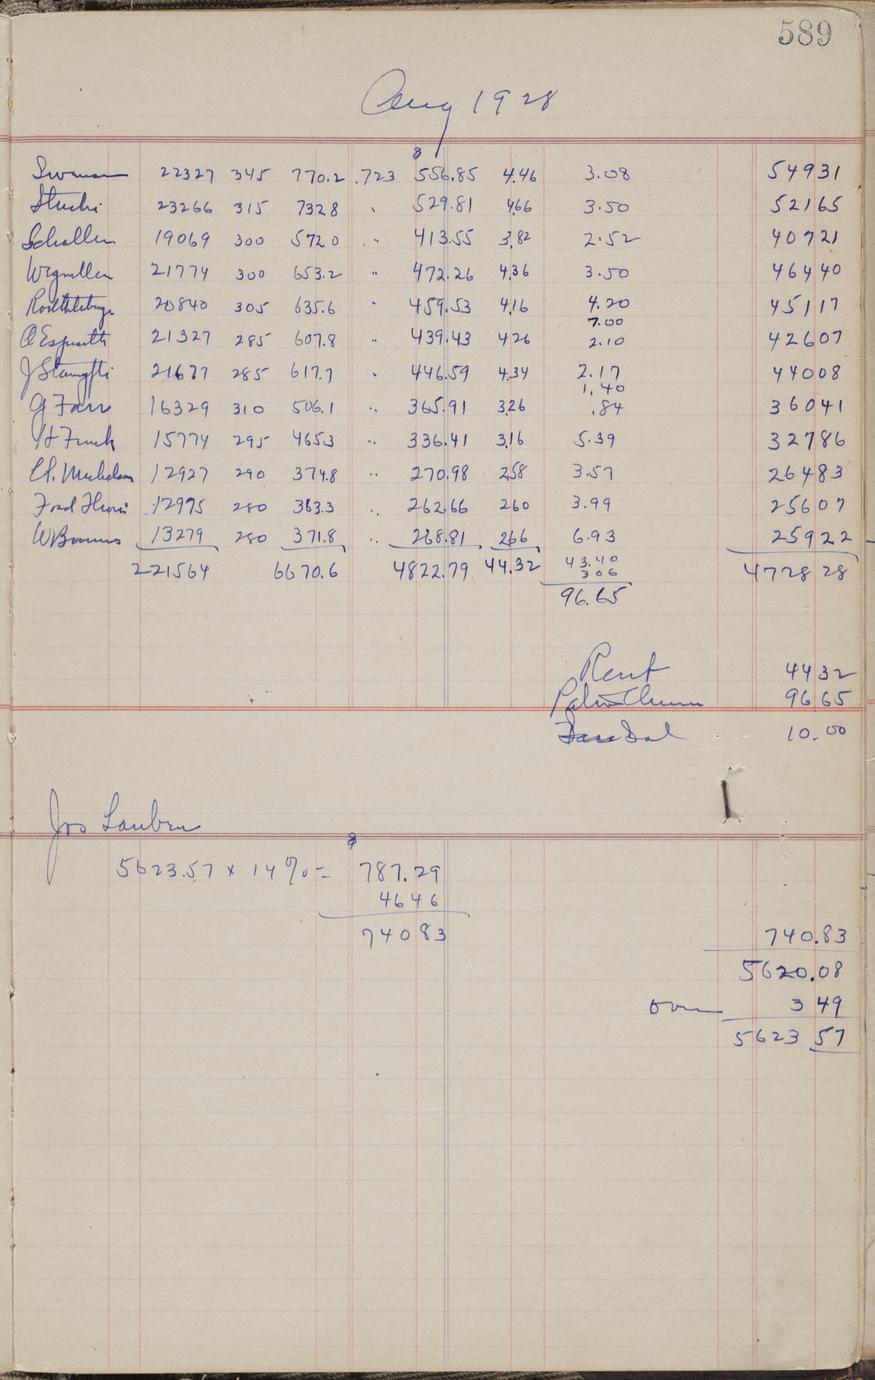 589
Aug 1928
Swanson 22327 345 770.2 .723 $ 556.85 4.46 3.08 54931
Stucki 23266 315 732 8 " 529.81 4.66 3.50 52165
Schallen 19069 300 572 0 " 413.55 3.82 2.52 40721
21774 300 653.2 " 472.26 4.36 3.50 46440
20840 305 635.6 " 459.53 4.16 4.20 45117
7.00
21327 285 607.8 " 439.43 4 26 2.10 42607
21677 285 617.7 " 446.59 4.34 2.17 44008
1.40
G Farr 16329 310 506.1 " 365.91 3.26 .84 36041
H Funk 15774 295 465.3 " 336.41 3.16 5.39 32786
12927 290 374.8 " 270.98 2 58 3.57 26483
12975 280 363.3 " 262.66 2 60 3.99 25607
13279 280 371.8 " 268.81 2 66 6.93 25922
221564 6670.6 4822.79 44.32 43.40 4728 28
3 0 6
96.65
Rent 44 32
96 65
10.00
Jos Lauben
5623.57 x 14% = $ 787.29
46 46
740 83
740.83
5620.08
over 3 49
5623 57